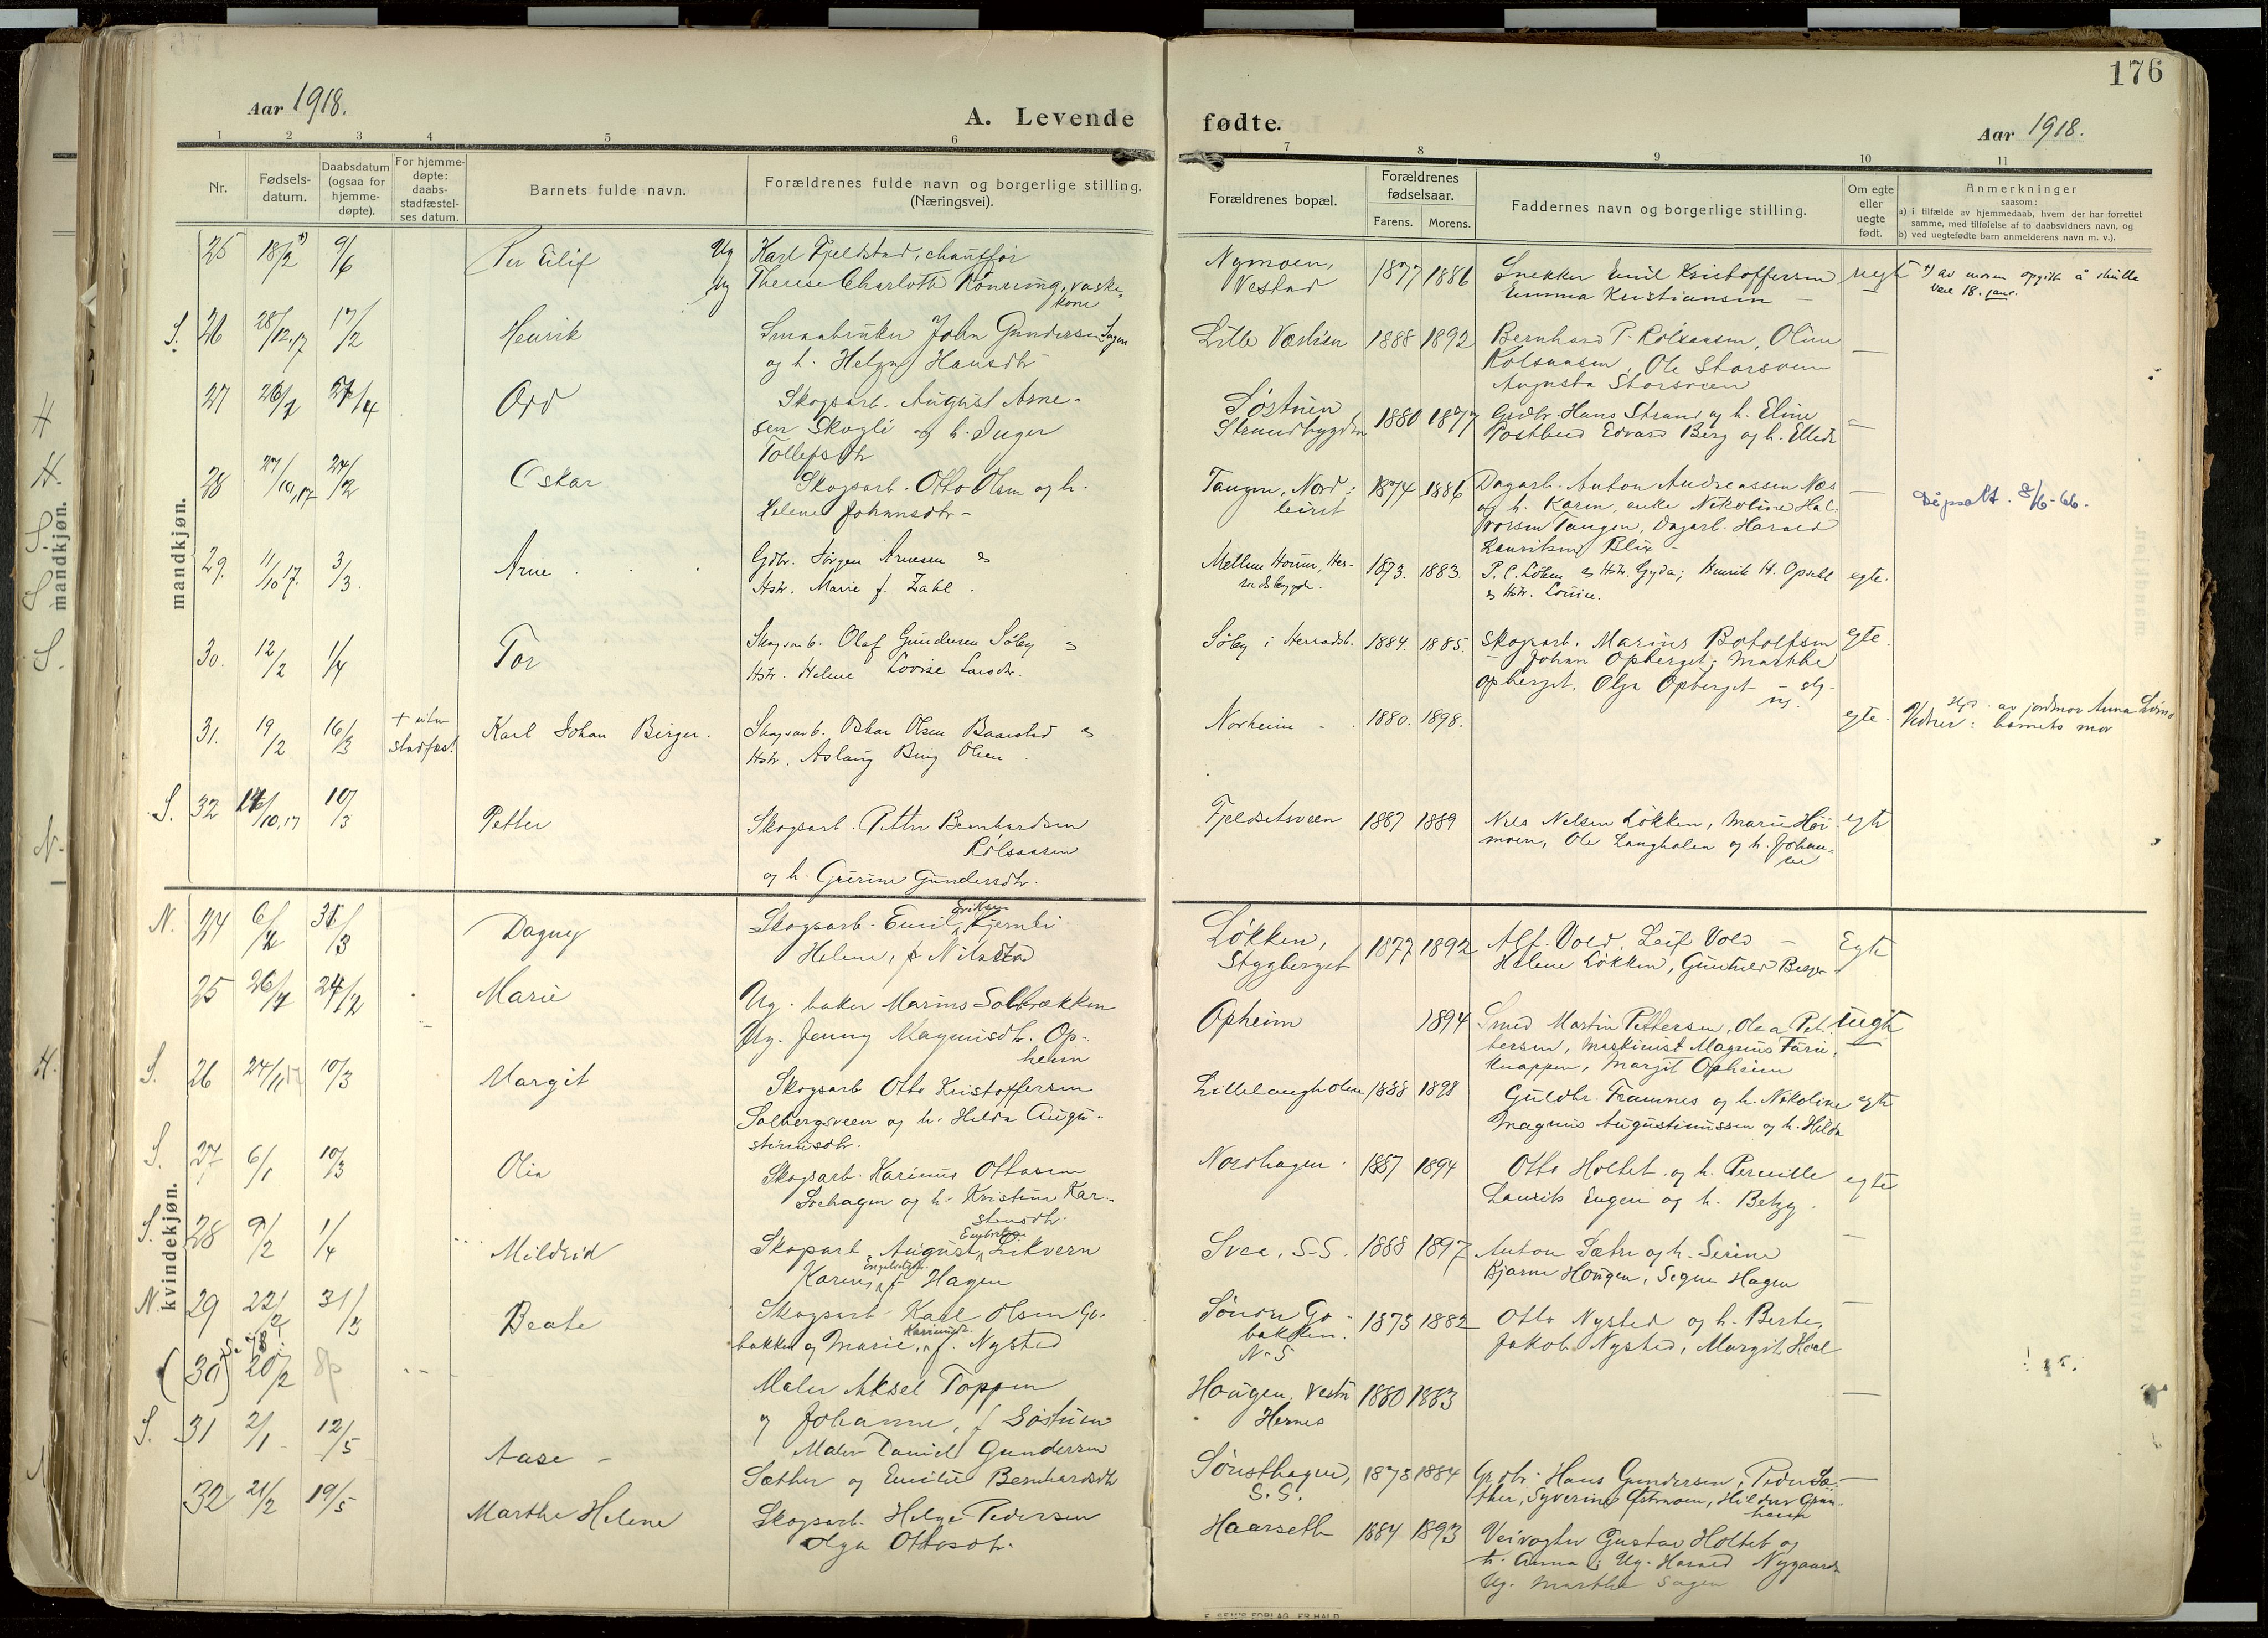 176
Aar 1918.
A. Levende fødte.
Aar 1918.
1 2 3 4 5 6 7 8 9 10 11
Nr.
Fødsels-
datum.
Daabsdatum
(ogsaa for
hjemme-
døpte).
For hjemme-
døpte:
daabs-
stadfæstel-
ses datum.
Barnets fulde navn.
Forældrenes fulde navn og borgerlige stilling.
(Næringsvei).
Forældrenes bopæl.
Forældrenes
fødselsaar.
Farens. Morens.
Faddernes navn og borgerlige stilling.
Om egte
eller
uegte
født.
Anmerkninger
saasom:
a) i tilfælde av hjemmedaab, hvem der har forrettet
samme, med tilføielse af to daabsvidners navn, og
b) ved uegtefødte barn anmelderens navn m. v.).
mandkjøn.
mandkjøn.
25 18/2 9/6 Per Eilif Ug Karl Fjeldstad, chauffør
Ug Therese Charlotte Rønning, vaske-
kone
Nymoen,
Vestad
1877 1886
Snekker Emil Kristoffersen
Emma Kristiansen
uegt
*) av moren opgit å skulle
være 18. jan.
S. 26 28/12.17 17/2 Henrik
Smaabruker John Gundersen Sagen
og h. Helga Hansdtr
Lille Væslien 1888 1892
Bernhard P. Rølsaasen, Oline
Rølsaasen, Ole Storsveen
Augusta Storsveen
27 26/2 21/4 Odd
Skogsarb. August Arne-
sen Skogli og h. Inger
Tollefsdtr
Søstuen
Strandbygden
1880 1877
Grdbr. Hans Strand og h. Eline
Postbud Edvard Berg og h. Ellede
28 27/10,17 24/2 Oskar
Skogsarb. Otto Olsen og h.
Helene Johansdtr -
Tangen, Nord-
leiret
1874 1886
Dagarb. Anton Andreassen Næs
og h. Karen, enke Nikoline Hal-
vorsen Tangen, Dagarb. Harald
Lauritsen Blix -
Utpsalt. 2/6-66.
29. 11/10 17. 3/3. Arne
Gdbr. Jørgen Arnesen og
Hstr. Marie f. Zahl.
Mellem Houm, Her-
radsbygd.
1873. 1883.
P. C. Løken og Hstr. Gyda; Henrik H. Opsahl
og Hstr. Louise.
egte.
30. 12/2 1/4 Tor
Skogsarb. Olaf Gundersen Søby og
Hstr. Helene Lovise Larsdtr.
Søby i Herradsb. 1884. 1885.
Skogsarb. Marius Botolfsen
- Johan Opberget; Marthe
Opberget, Olga Opberget - ug.
egte.
31. 19/2 16/3
stadfæst
Karl Johan Birger.
Skogsarb. Oskar Olsen Baarstad og
Hstr. Aslaug Berg Olsen
Norheim - 1880. 1898.
egte.
Hjd. av jordmor Anna
Vidner: barnets mor
S. 32 14/10,17 10/3 Petter
Skogsarb. Petter Bernhardsen
Rølsaasen
og h. Gurine Gundersdtr.
Fjeldsetsveen 1887 1889
Nils Nelsen Løkken, Marie Høi-
moen, Ole Langholen og h. Johan-
ne
egte
kvindekjøn.
N. 24 6/2 31/3 Dagny
Skogsarb. Emil Eriksen Kjernli
Helene, f. Nilsstad
Løkken,
Stygberget
1877 1892
Alf. Vold, Leif Vold -
Helene Løkken, Gunhild Berger
Egte
25 26/1 24/2 Marie
Ug. baker Marius Solbrækken
Ug. Jenny Magnusdtr. Op-
heim
Opheim 1894
Smed Martin Pettersen, Olea Pet-
tersen, Maskinist Magnus Furu-
knappen, Margit Opheim
uegte
S. 26 24/11 17 10/3 Margit
Skogsarb Otto Kristoffersen
Solbergsveen og h. Hilda Augu-
stinusdtr.
Lillelangholen 1888 1898
Guldbr. Framnes og h. Nikoline
Magnus Augustinussen og h. Hilda
egte
S. 27 6/1 10/3 Olia
Skogsarb. Karinus Ottosen
Svehagen og h. Kristine Kar-
stensdtr.
Nordhagen. 1887 1894
Otto Holtet og h. Pernille
Laurits Engen og h. Betzy.
egte
S. 28 9/2 1/4 Mildrid
Skogsarb. August Embretsen Likvern
Karen Engebretsen f. Hagen
Svea, S-S. 1888 1897
Anton Sætre og h. Serine
Bjarne Hougen, Signe Hagen
N. 29 22/2 31/3 Beate
Skogsarb. Karl Olsen Go-
bakken og Marie, Karinusdtr. f. Nysted
Søndre Go-
bakken.
N-S
1873 1882
Otto Nysted og h. Berte,
Jakob Nysted, Margit Hoel
(30) 20/2
Maler Aksel Toppen
og Johanne, f. Søstuen
Hougen, Vestre
Hernes
1880 1883
S. 31 2/1 12/5 Aase -
Maler Daniel Gundersen
Sæther og Emilie Bernhardsdtr
Sønsthagen,
S.S.
1873 1884
Grdbr. Hans Gundersen, Peder Sæ-
ther, Syverine Østmoen, Hildur Gran-
32 21/2 19/5 Marthe Helene
Skogsarb. Helge Pedersen
Olga Ottosdtr.
Haarseth 1884 1893
Veivogter Gustav Holtet og
h. Anna; Ug. Harald Nygaard
Ug. Marthe Sagen